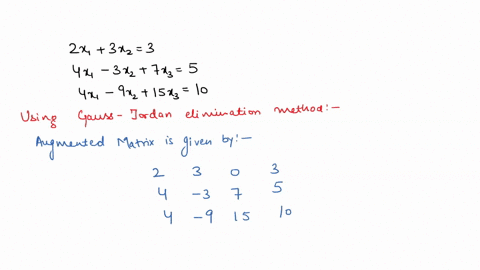 2x₁ + 3x₂ = 3
4x₁ - 3x₂ + 7x₃ = 5
4x₁ - 9x₂ + 15x₃ = 10
Using Gauss-Jordan elimination method:-
Augmented Matrix is given by:-
2 3 0 3
4 -3 7 5
4 -9 15 10